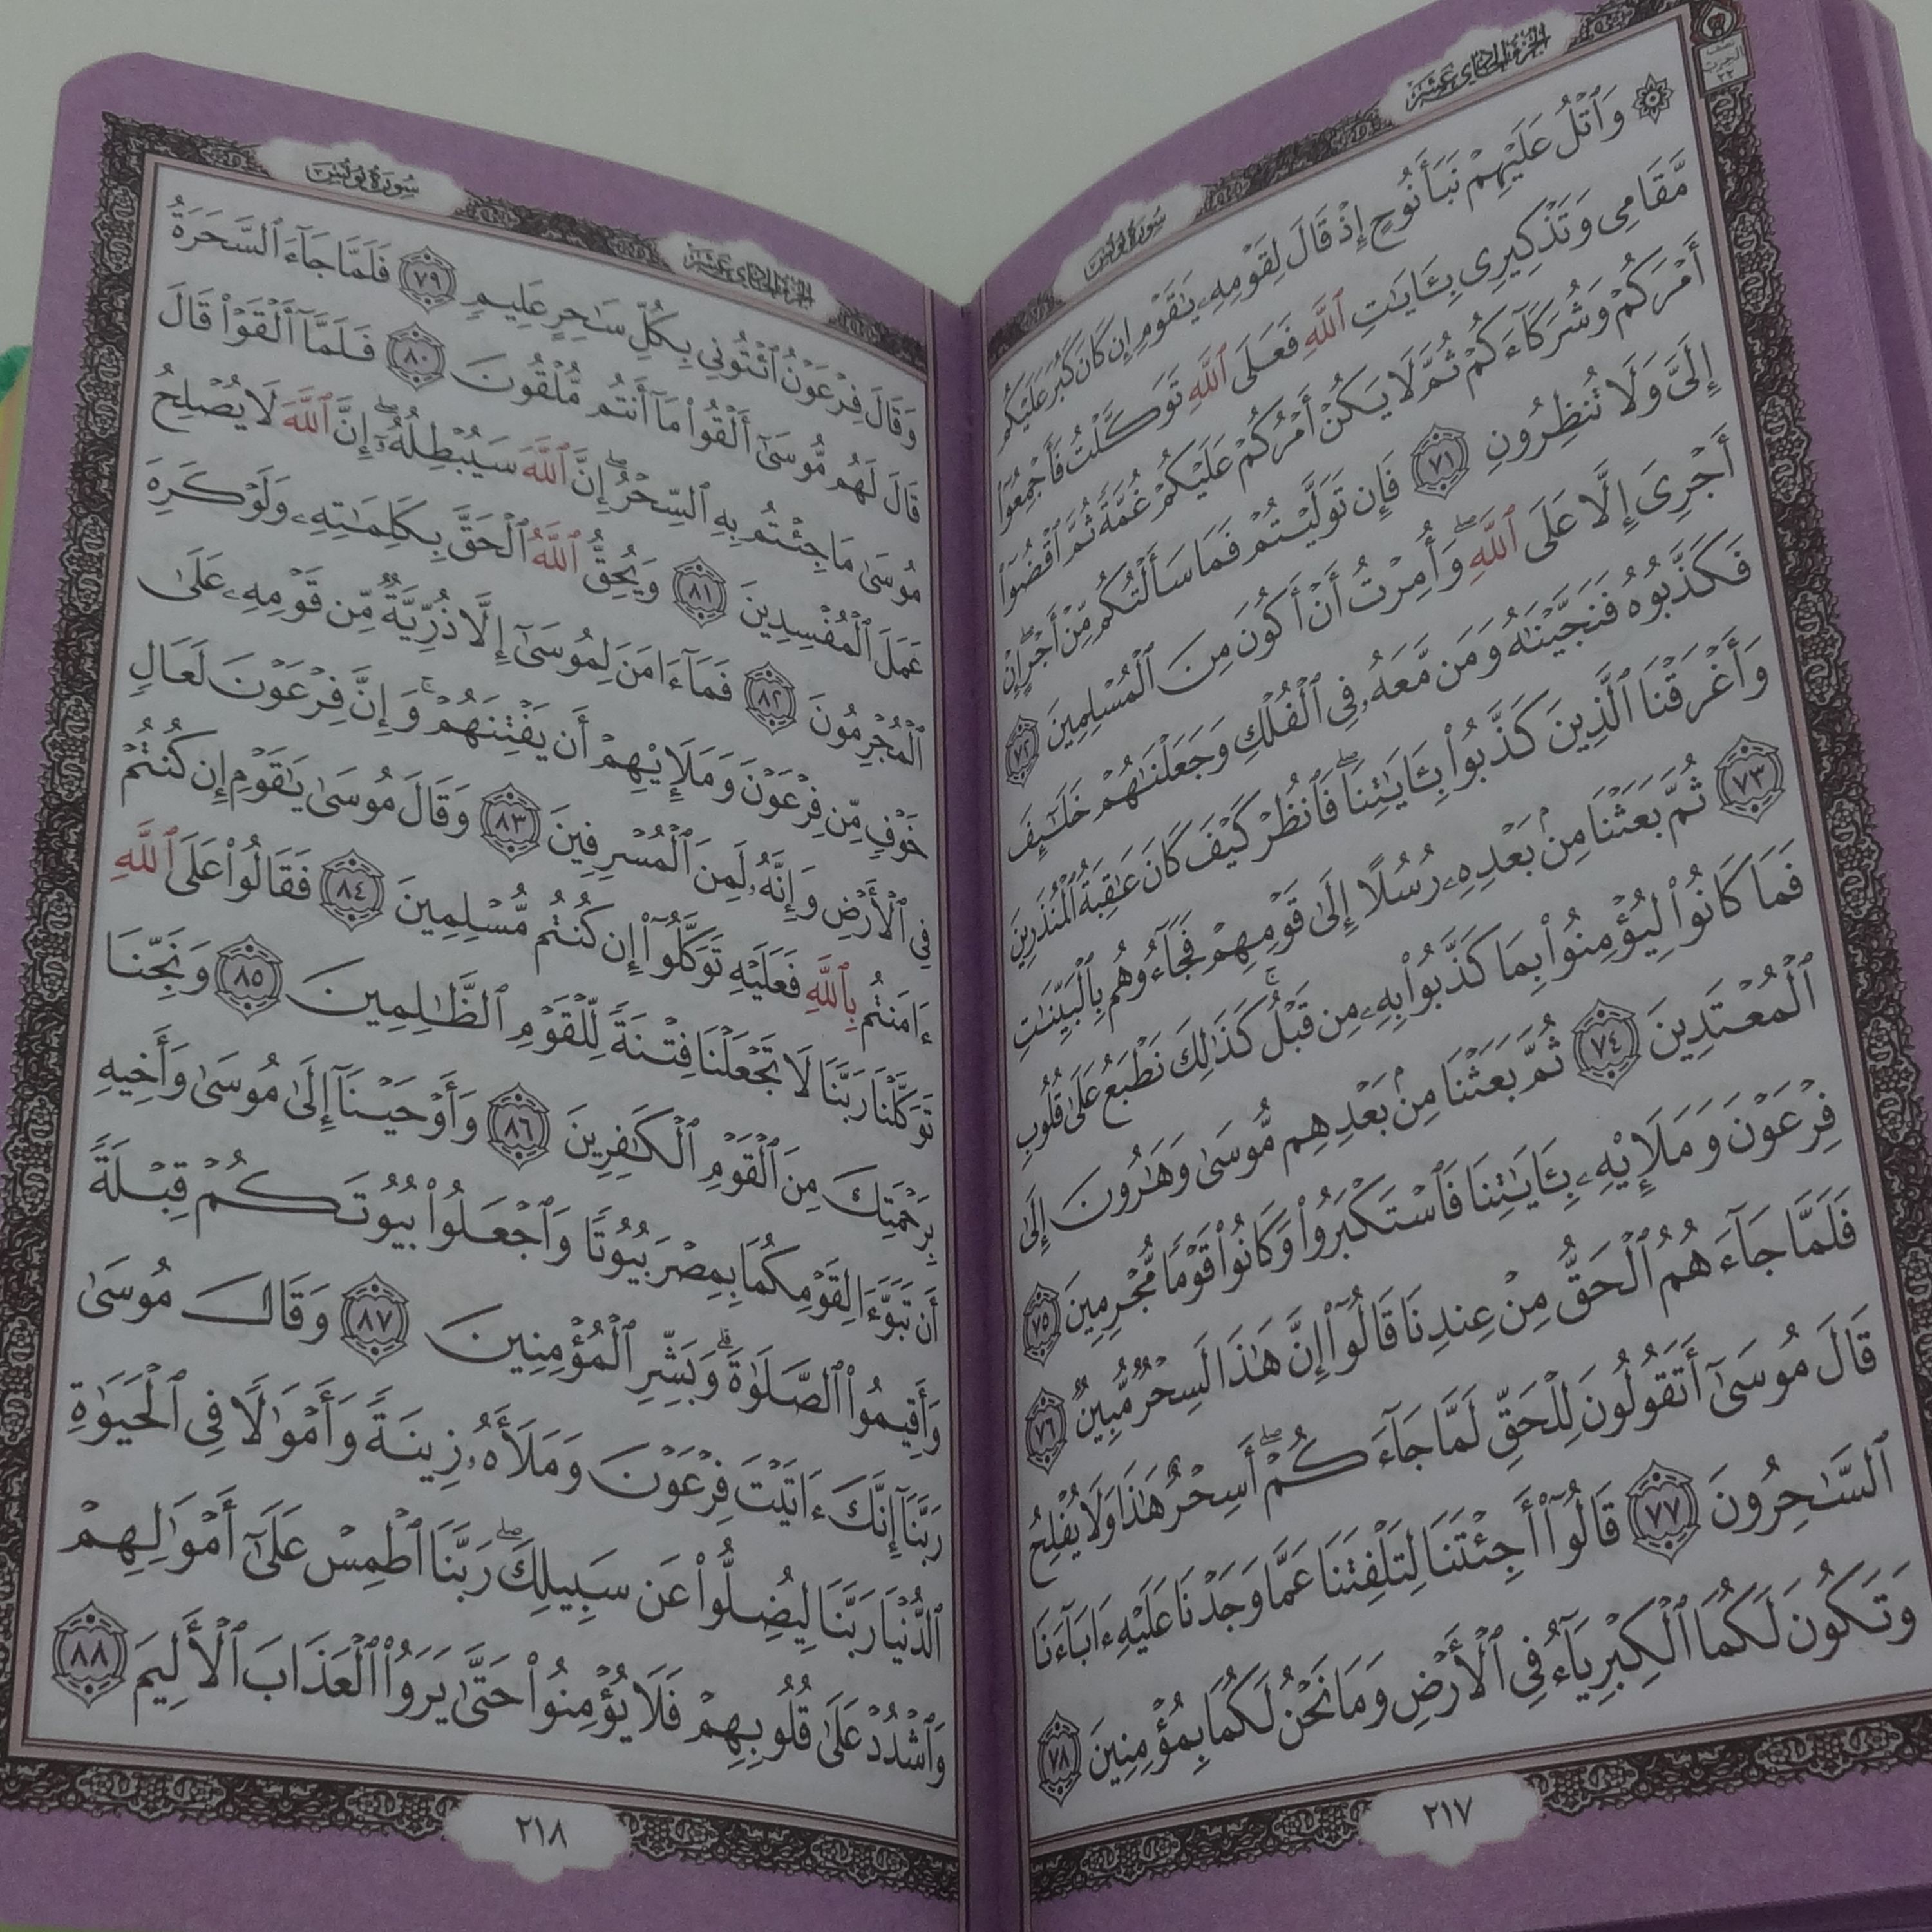 الجزء الحادي عشر
سورة يونس
نصف
الحزب
٢٢
۞ وَٱتۡلُ عَلَيۡهِمۡ نَبَأَ نُوحٍ إِذۡ قَالَ لِقَوۡمِهِۦ يَٰقَوۡمِ إِن كَانَ كَبُرَ عَلَيۡكُم
مَّقَامِي وَتَذۡكِيرِي بِـَٔايَٰتِ ٱللَّهِ فَعَلَى ٱللَّهِ تَوَكَّلۡتُ فَأَجۡمِعُوٓاْ
أَمۡرَكُمۡ وَشُرَكَآءَكُمۡ ثُمَّ لَا يَكُنۡ أَمۡرُكُمۡ عَلَيۡكُمۡ غُمَّةٗ ثُمَّ ٱقۡضُوٓاْ
إِلَيَّ وَلَا تُنظِرُونِ ٧١ فَإِن تَوَلَّيۡتُمۡ فَمَا سَأَلۡتُكُم مِّنۡ أَجۡرٍۖ إِنۡ
أَجۡرِيَ إِلَّا عَلَى ٱللَّهِۖ وَأُمِرۡتُ أَنۡ أَكُونَ مِنَ ٱلۡمُسۡلِمِينَ ٧٢
فَكَذَّبُوهُ فَنَجَّيۡنَٰهُ وَمَن مَّعَهُۥ فِي ٱلۡفُلۡكِ وَجَعَلۡنَٰهُمۡ خَلَٰٓئِفَ
وَأَغۡرَقۡنَا ٱلَّذِينَ كَذَّبُواْ بِـَٔايَٰتِنَاۖ فَٱنظُرۡ كَيۡفَ كَانَ عَٰقِبَةُ ٱلۡمُنذَرِينَ
٧٣ ثُمَّ بَعَثۡنَا مِنۢ بَعۡدِهِۦ رُسُلًا إِلَىٰ قَوۡمِهِمۡ فَجَآءُوهُم بِٱلۡبَيِّنَٰتِ
فَمَا كَانُواْ لِيُؤۡمِنُواْ بِمَا كَذَّبُواْ بِهِۦ مِن قَبۡلُۚ كَذَٰلِكَ نَطۡبَعُ عَلَىٰ قُلُوبِ
ٱلۡمُعۡتَدِينَ ٧٤ ثُمَّ بَعَثۡنَا مِنۢ بَعۡدِهِم مُّوسَىٰ وَهَٰرُونَ إِلَىٰ
فِرۡعَوۡنَ وَمَلَإِيْهِۦ بِـَٔايَٰتِنَا فَٱسۡتَكۡبَرُواْ وَكَانُواْ قَوۡمٗا مُّجۡرِمِينَ ٧٥
فَلَمَّا جَآءَهُمُ ٱلۡحَقُّ مِنۡ عِندِنَا قَالُوٓاْ إِنَّ هَٰذَا لَسِحۡرٞ مُّبِينٞ ٧٦
قَالَ مُوسَىٰٓ أَتَقُولُونَ لِلۡحَقِّ لَمَّا جَآءَكُمۡۖ أَسِحۡرٌ هَٰذَا وَلَا يُفۡلِحُ
ٱلسَّٰحِرُونَ ٧٧ قَالُوٓاْ أَجِئۡتَنَا لِتَلۡفِتَنَا عَمَّا وَجَدۡنَا عَلَيۡهِ ءَابَآءَنَا
وَتَكُونَ لَكُمَا ٱلۡكِبۡرِيَآءُ فِي ٱلۡأَرۡضِ وَمَا نَحۡنُ لَكُمَا بِمُؤۡمِنِينَ ٧٨
٢١٧
الجزء الحادي عشر
سورة يونس
وَقَالَ فِرۡعَوۡنُ ٱئۡتُونِي بِكُلِّ سَٰحِرٍ عَلِيمٖ ٧٩ فَلَمَّا جَآءَ ٱلسَّحَرَةُ
قَالَ لَهُم مُّوسَىٰٓ أَلۡقُواْ مَآ أَنتُم مُّلۡقُونَ ٨٠ فَلَمَّآ أَلۡقَوۡاْ قَالَ
مُوسَىٰ مَا جِئۡتُم بِهِ ٱلسِّحۡرُۖ إِنَّ ٱللَّهَ سَيُبۡطِلُهُۥٓۖ إِنَّ ٱللَّهَ لَا يُصۡلِحُ
عَمَلَ ٱلۡمُفۡسِدِينَ ٨١ وَيُحِقُّ ٱللَّهُ ٱلۡحَقَّ بِكَلِمَٰتِهِۦ وَلَوۡ كَرِهَ
ٱلۡمُجۡرِمُونَ ٨٢ فَمَآ ءَامَنَ لِمُوسَىٰٓ إِلَّا ذُرِّيَّةٞ مِّن قَوۡمِهِۦ عَلَىٰ
خَوۡفٖ مِّن فِرۡعَوۡنَ وَمَلَإِيْهِمۡ أَن يَفۡتِنَهُمۡۚ وَإِنَّ فِرۡعَوۡنَ لَعَالٖ
فِي ٱلۡأَرۡضِ وَإِنَّهُۥ لَمِنَ ٱلۡمُسۡرِفِينَ ٨٣ وَقَالَ مُوسَىٰ يَٰقَوۡمِ إِن كُنتُمۡ
ءَامَنتُم بِٱللَّهِ فَعَلَيۡهِ تَوَكَّلُوٓاْ إِن كُنتُم مُّسۡلِمِينَ ٨٤ فَقَالُواْ عَلَى ٱللَّهِ
تَوَكَّلۡنَا رَبَّنَا لَا تَجۡعَلۡنَا فِتۡنَةٗ لِّلۡقَوۡمِ ٱلظَّٰلِمِينَ ٨٥ وَنَجِّنَا
بِرَحۡمَتِكَ مِنَ ٱلۡقَوۡمِ ٱلۡكَٰفِرِينَ ٨٦ وَأَوۡحَيۡنَآ إِلَىٰ مُوسَىٰ وَأَخِيهِ
أَن تَبَوَّءَا لِقَوۡمِكُمَا بِمِصۡرَ بُيُوتٗا وَٱجۡعَلُواْ بُيُوتَكُمۡ قِبۡلَةٗ
وَأَقِيمُواْ ٱلصَّلَوٰةَۗ وَبَشِّرِ ٱلۡمُؤۡمِنِينَ ٨٧ وَقَالَ مُوسَىٰ
رَبَّنَآ إِنَّكَ ءَاتَيۡتَ فِرۡعَوۡنَ وَمَلَأَهُۥ زِينَةٗ وَأَمۡوَٰلٗا فِي ٱلۡحَيَوٰةِ
ٱلدُّنۡيَا رَبَّنَا لِيُضِلُّواْ عَن سَبِيلِكَۖ رَبَّنَا ٱطۡمِسۡ عَلَىٰٓ أَمۡوَٰلِهِمۡ
وَٱشۡدُدۡ عَلَىٰ قُلُوبِهِمۡ فَلَا يُؤۡمِنُواْ حَتَّىٰ يَرَوُاْ ٱلۡعَذَابَ ٱلۡأَلِيمَ ٨٨
٢١٨